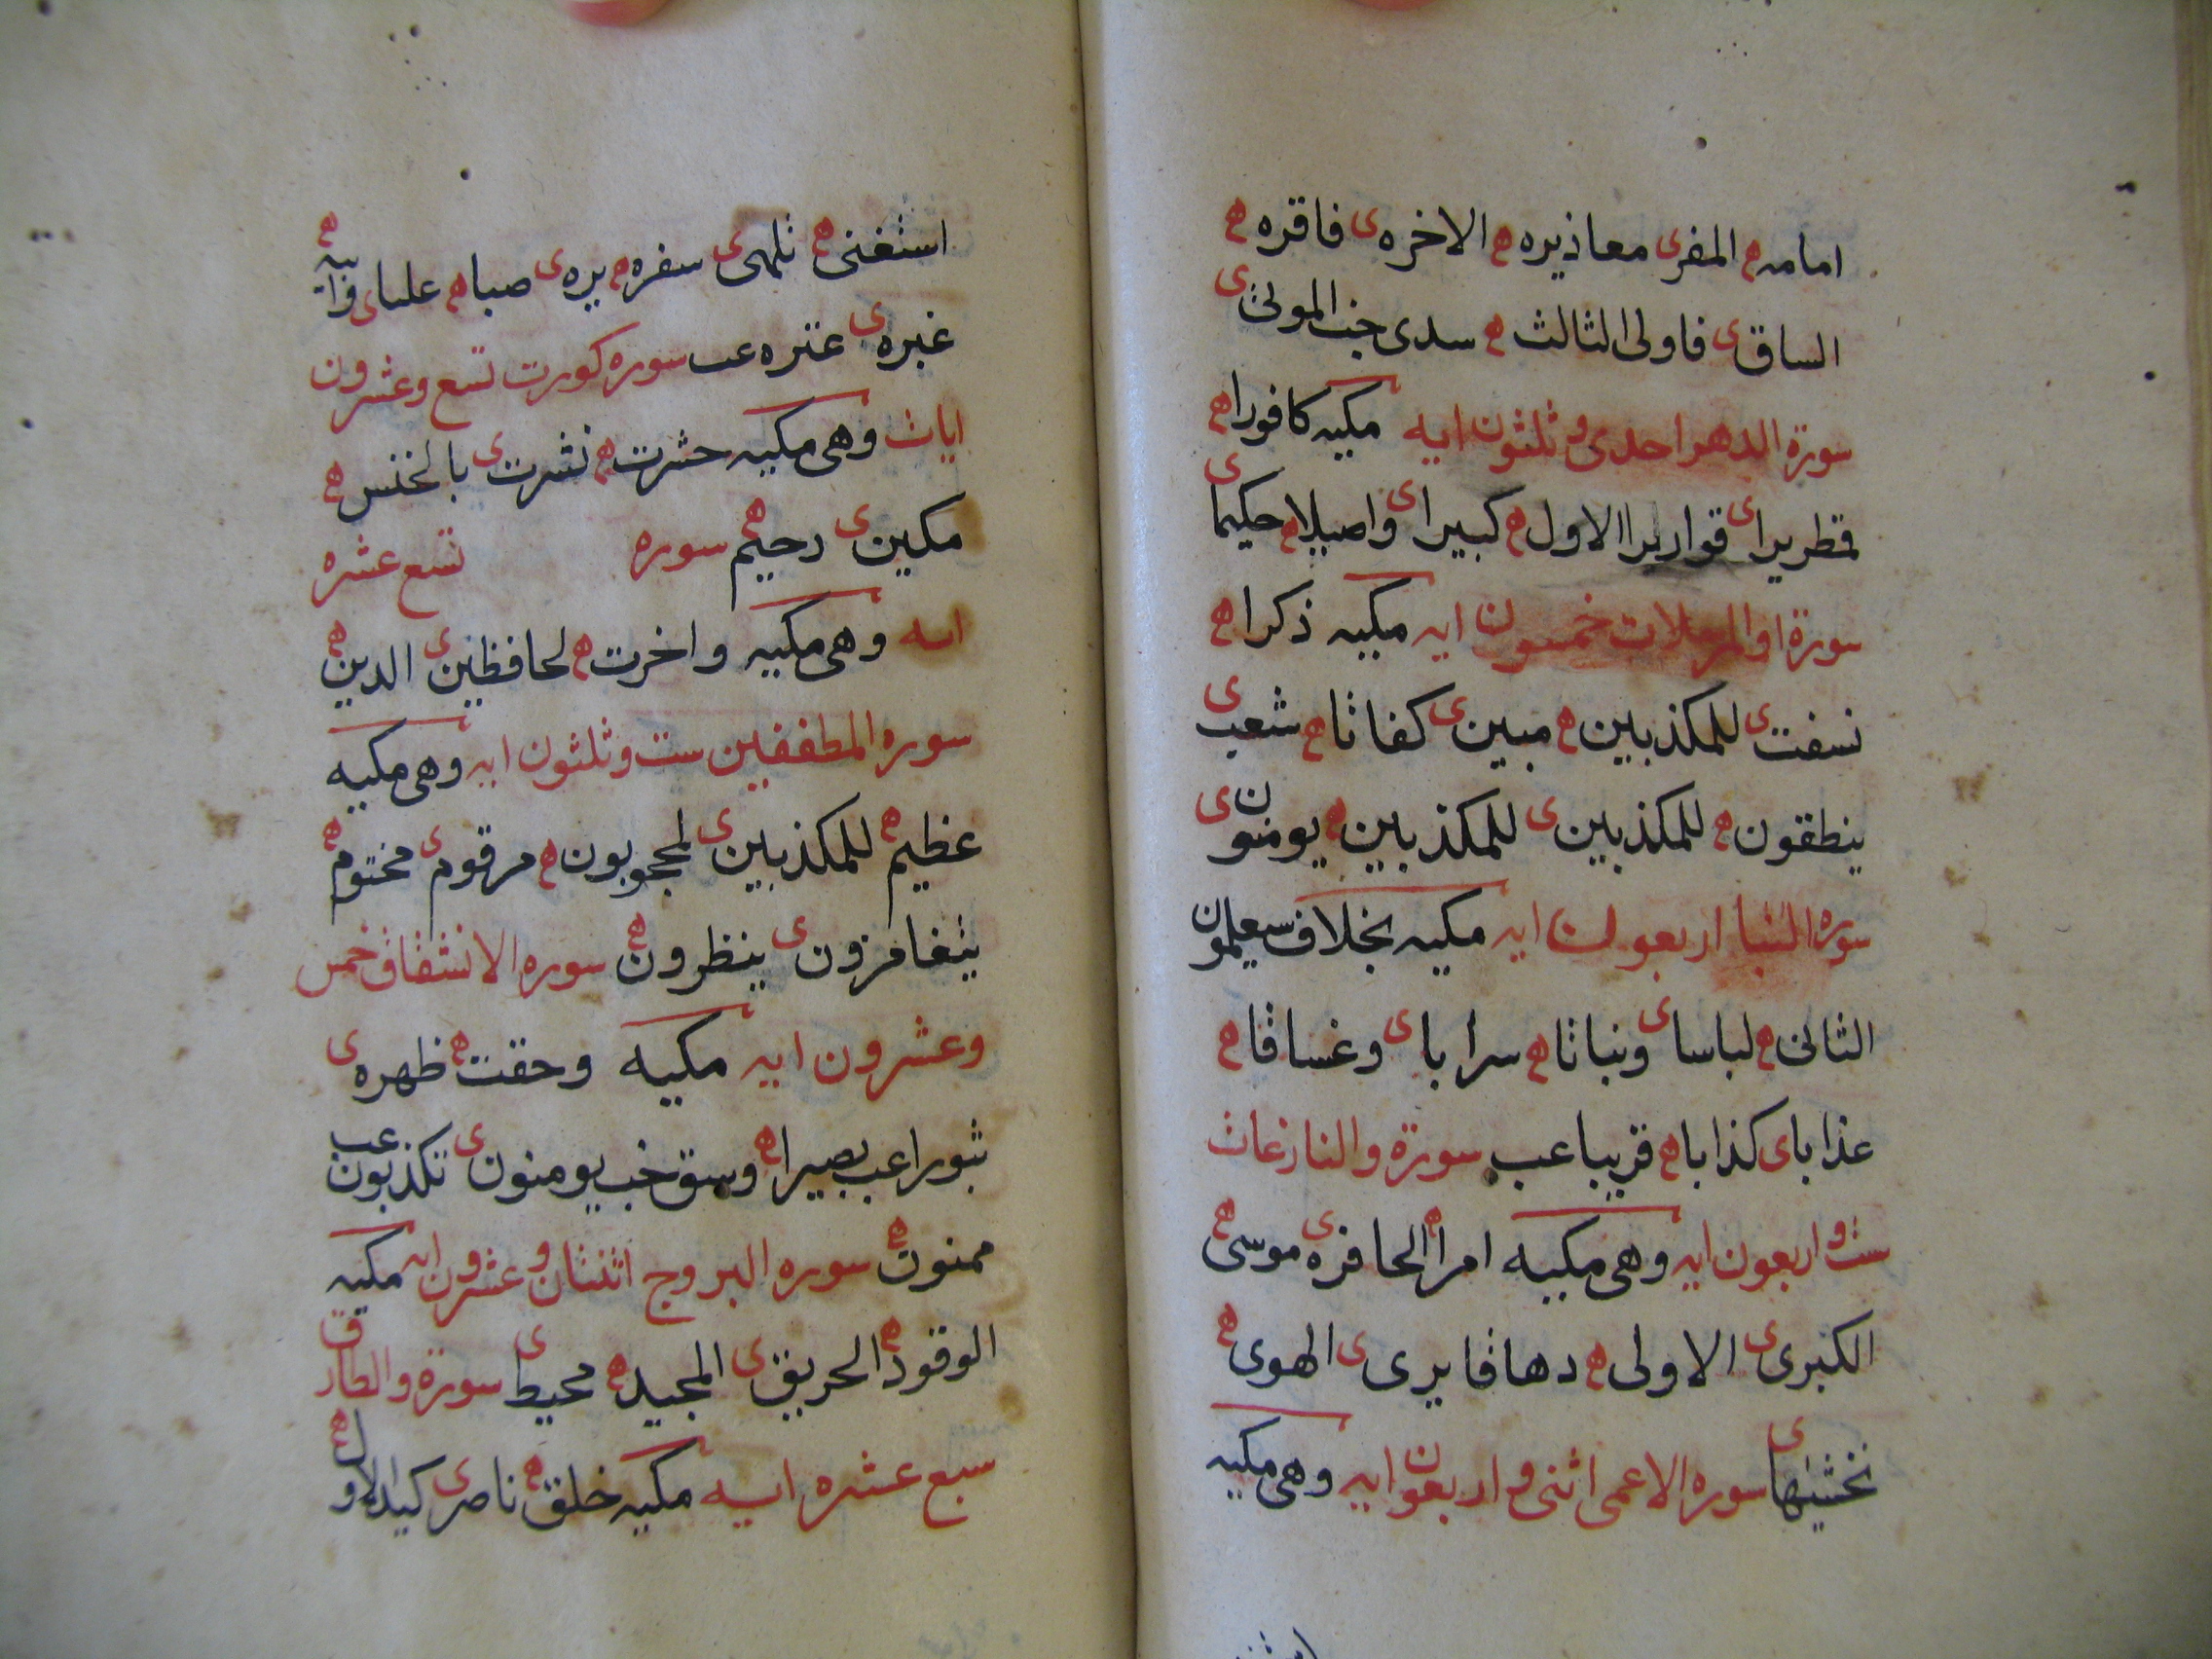 امامه ه المفر ى معاذيره ه الاخره ى فاقره ه
الساق ى فاولى الثالث ه سدى خب الموتى ى
سورة الدهر احدى و ثلثون ايه مكيه كافورا ه
قمطريرا ى قواريرا الاول ه كبيرا ى واصيلا ه حكيما ى
سورة والمرسلات خمسون ايه مكيه ذكرا ه
نسفت ى للمكذبين ه مبين ى كفاتا ه شعب ى
ينطقون ه للمكذبين ى للمكذبين ه يومنون ى
سوره النبا اربعون ايه مكيه بخلاف سيعلمون
الثانى ه لباسا ى ونباتا ه سرابا ى وغساقا ه
عذابا ى كذابا ه قريبا عب سورة والنازعات
ست و اربعون ايه وهى مكيه امرا ه الحافره ى موسى ه
الكبرى ى الاولى ه دهاقا يرى ى الهوى ه
نخشيها ى سوره الاعمى اثنى و اربعون ايه وهى مكيه
استغنى ه تلهى ى سفره ه برره ى صبا ه علبا ى
غبره ى عتره عب سوره كورت تسع وعشرون
ايات وهى مكيه حشرت ه نشرت ى بالخنس ه
مكين ى رحيم ه سوره تسع عشره
ايه وهى مكيه واخرت ه لحافظين ى الدين ه
سوره المطففين ست وثلثون ايه وهى مكيه
عظيم ه للمكذبين ى لمحجوبون ه مرقوم ى مختوم ه
يتغامزون ى ينظرون ه سوره الانشقاق خمس
وعشرون ايه مكيه وحقت ه ظهره ى
ثبورا عب بصيرا ه وسق خب يومنون ى تكذبون عب
ممنون ه سوره البروج اثنتان و عشرون ايه مكيه
الوقود ه الحريق ى المجيد ه محيط ى سورة والطارق
سبع عشره ايه مكيه خلق ه ناصر ى كيدا الاول ه